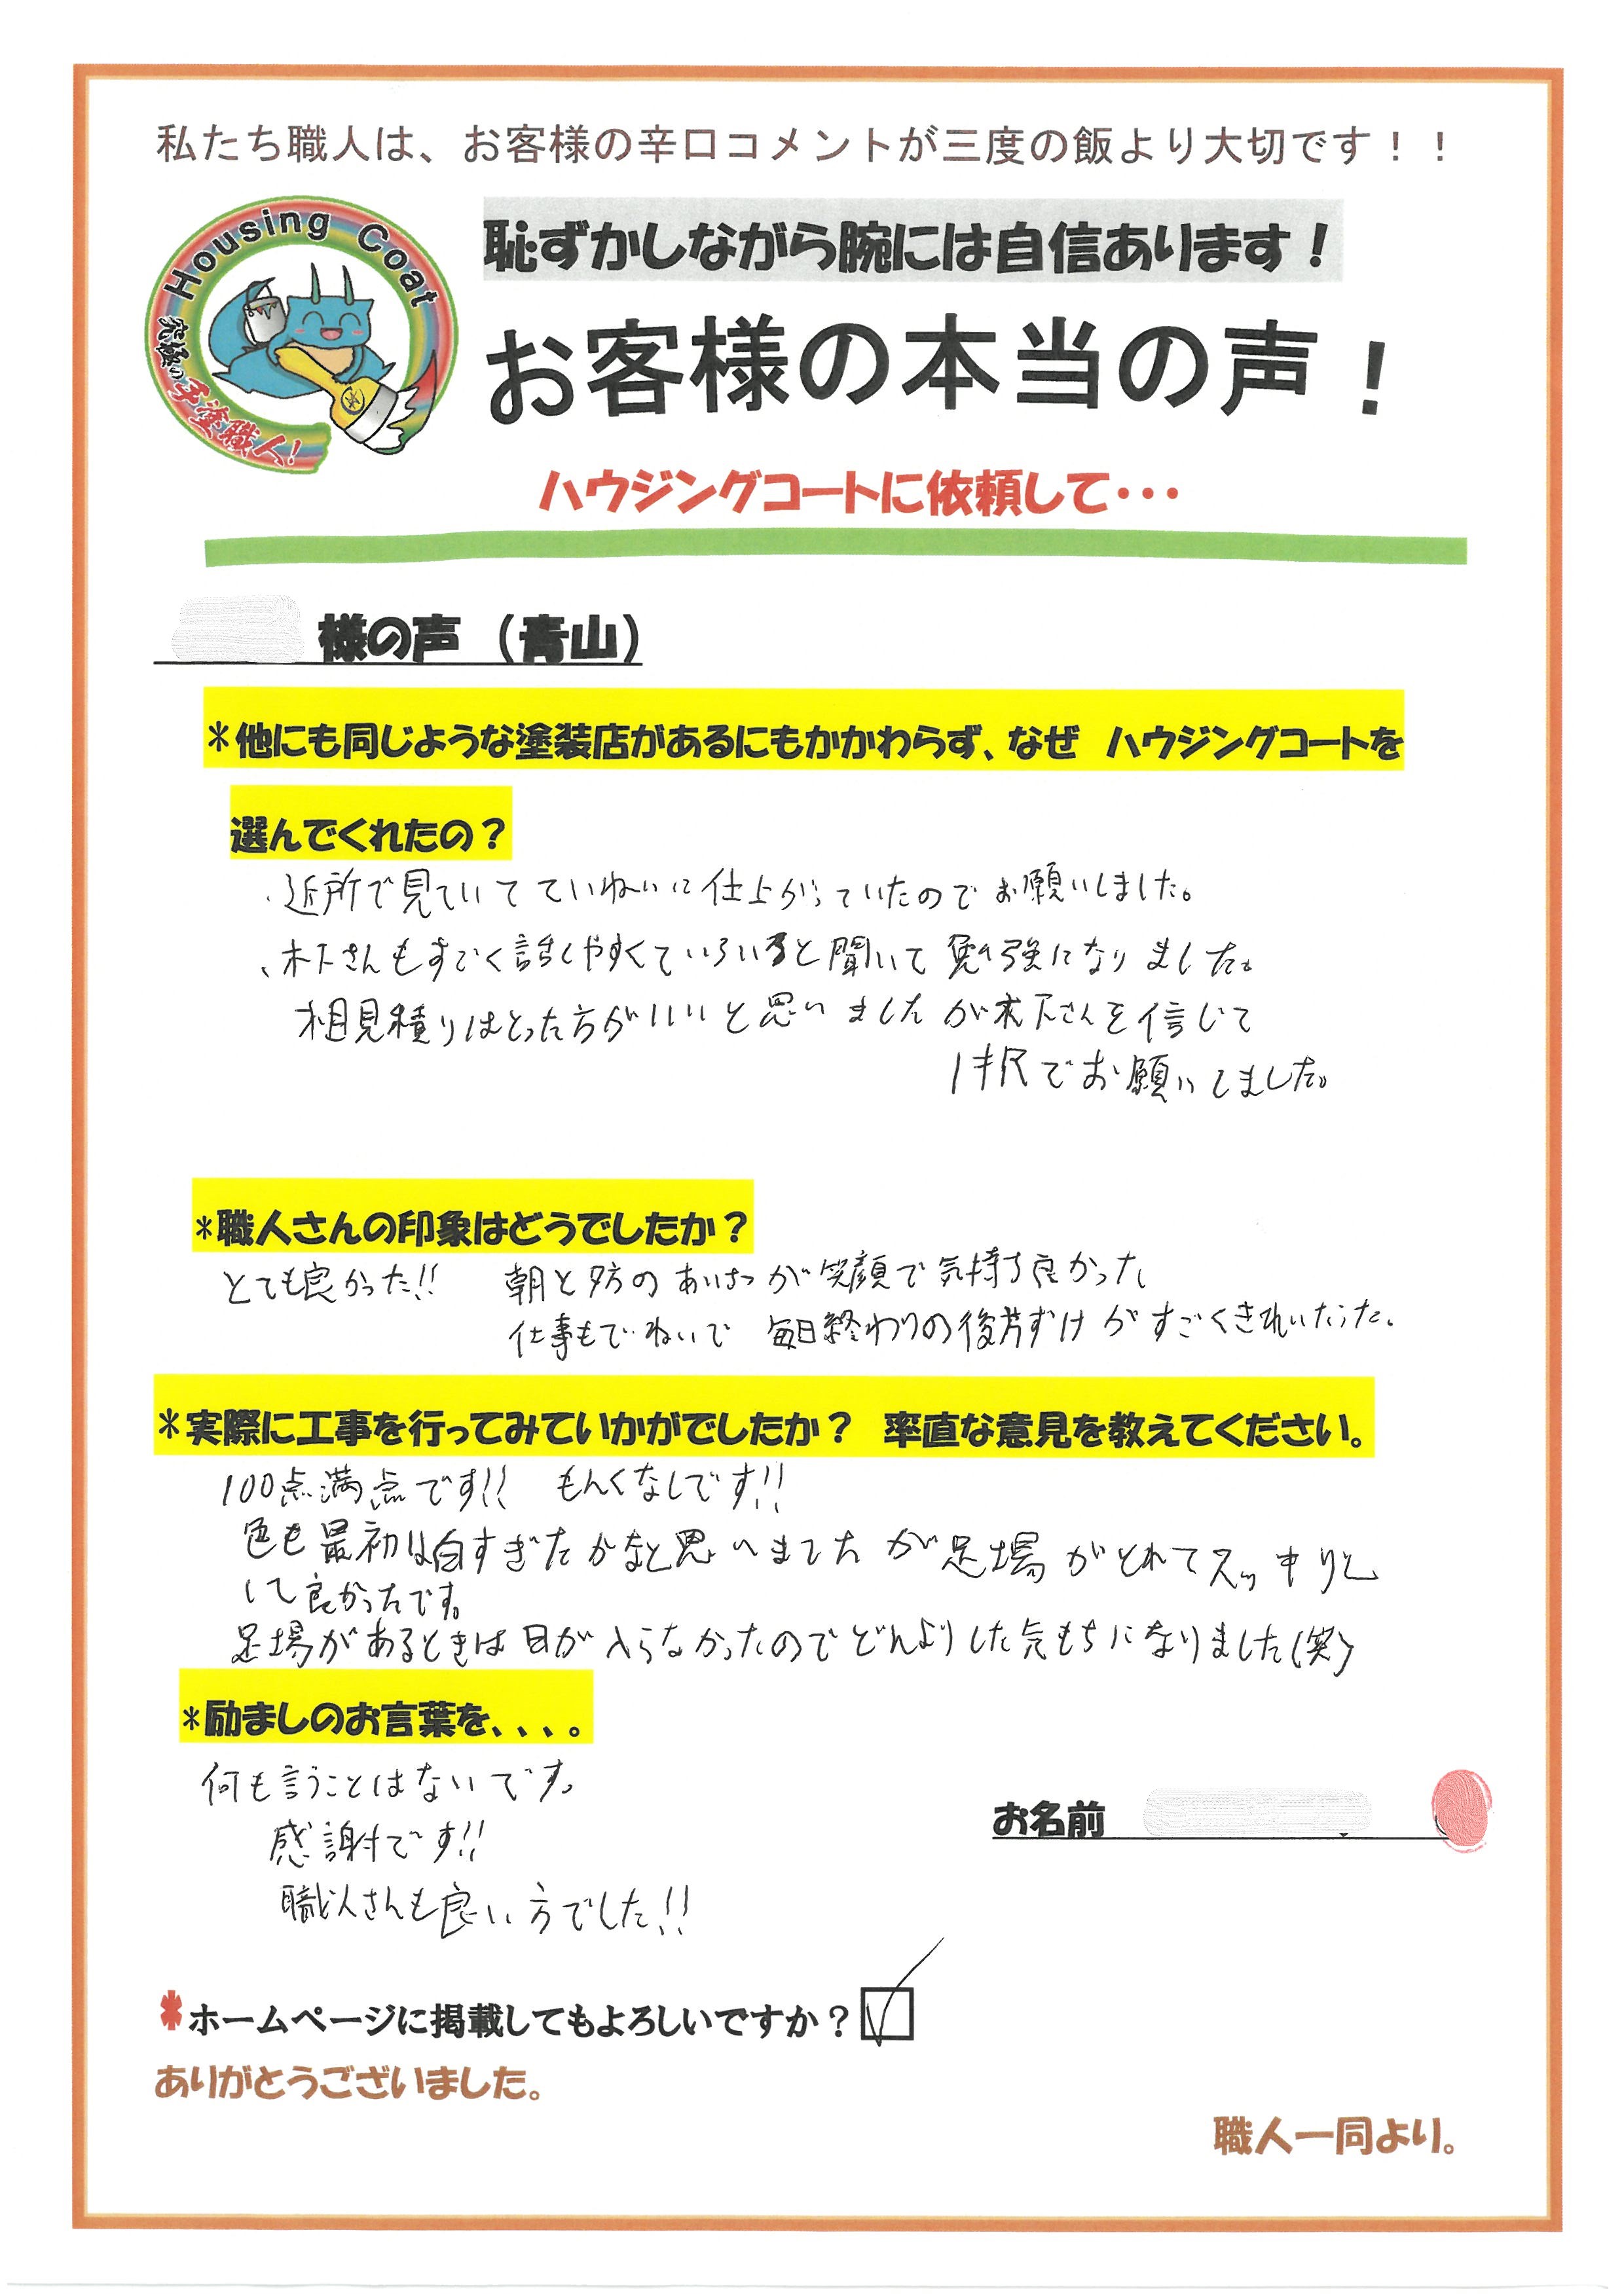 私たち職人は、お客様の辛口コメントが三度の飯より大切です！！
Housing Coat
究極の手塗職人!
恥ずかしながら腕には自信あります！
お客様の本当の声！
ハウジングコートに依頼して・・・
様の声（青山）
＊他にも同じような塗装店があるにもかかわらず、なぜ ハウジングコートを
選んでくれたの？
、近所で見ていてていねいに仕上がっていたのでお願いしました。
、木下さんもすごく話しやすくていろいろと聞いて勉強になりました。
相見積りはとった方がいいと思いましたが木下さんを信じて
1択でお願いしました。
＊職人さんの印象はどうでしたか？
とても良かった!! 朝と夕方のあいさつが笑顔で気持ち良かった
仕事もていねいで 毎日終わりの後片ずけがすごくきれいだった。
＊実際に工事を行ってみていかがでしたか？ 率直な意見を教えてください。
100点満点です!! もんくなしです!!
色も最初は白すぎたかなと思いましたが足場がとれてスッキリと
して良かったです。
足場があるときは日が入らなかったのでどんよりした気もちになりました(笑)
＊励ましのお言葉を、、、。
何も言うことはないです。
感謝です!!
職人さんも良い方でした!!
お名前
＊ホームページに掲載してもよろしいですか？
ありがとうございました。
職人一同より。